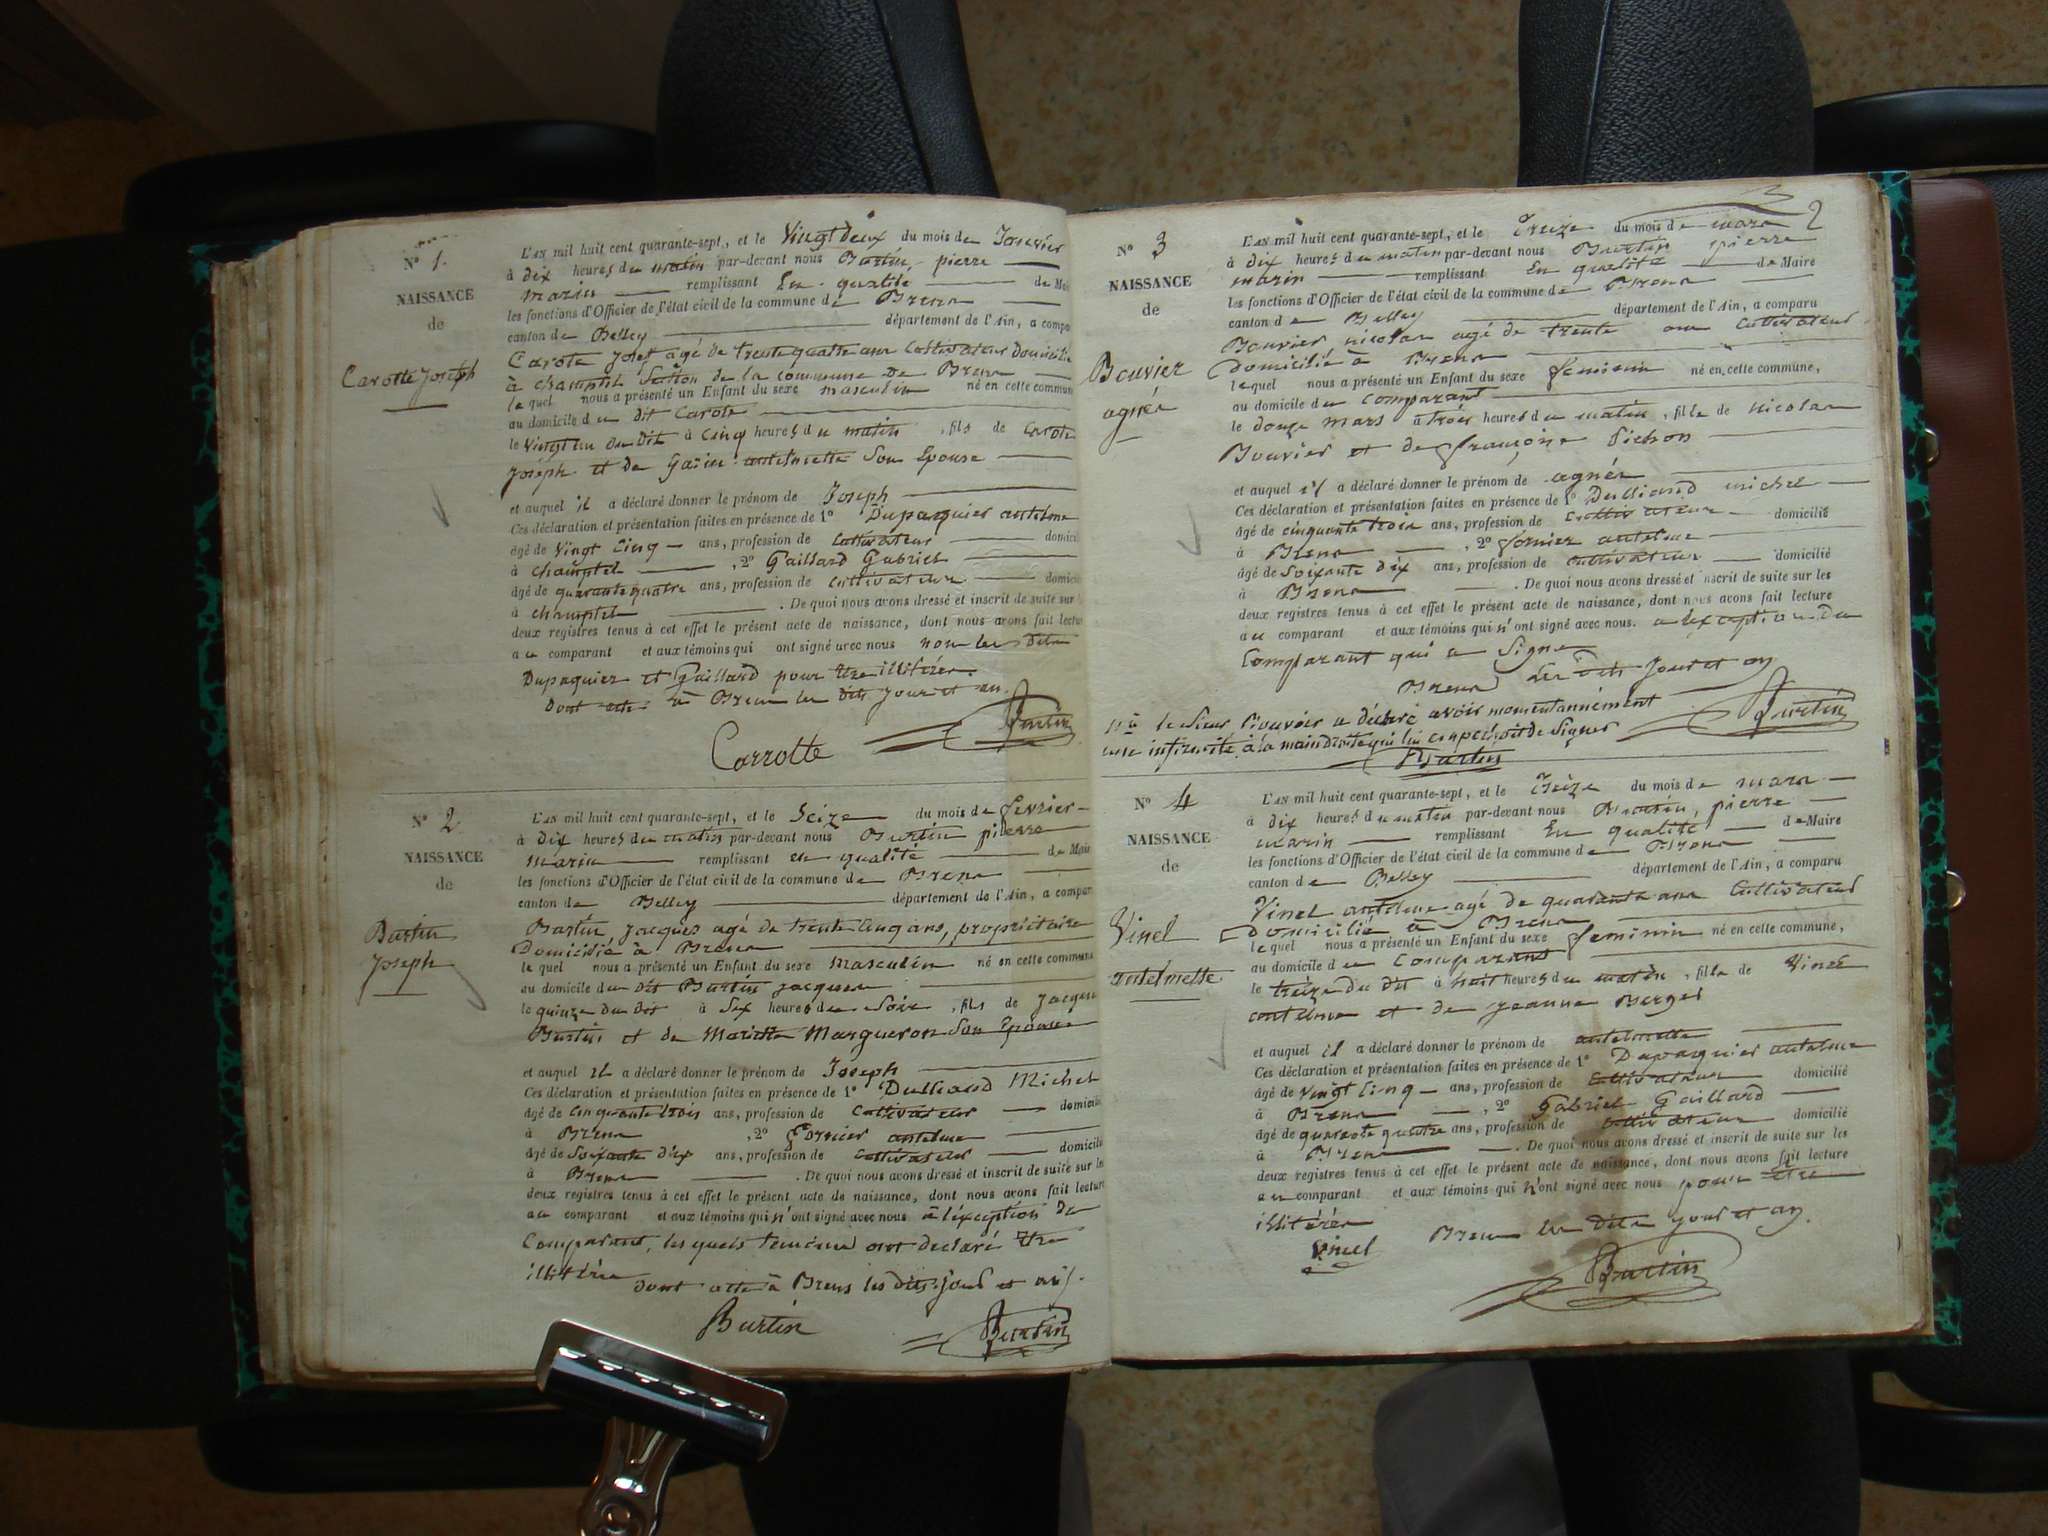 N° 1.
NAISSANCE
de
Carotte Joseph
L'AN mil huit cent quarante-sept, et le Vingt deux du mois de Janvier
à dix heures du matin par-devant nous Burtin, pierre
marin remplissant En qualité de Mai
les fonctions d'Officier de l'état civil de la commune de Brens
canton de Belley département de l'Ain, a compa
Carote Josef agé de trente quatre ans Cultivateur Domicilié
à champtel Section de la commune De Brens
le quel nous a présenté un Enfant du sexe masculin né en cette commun
au domicile du dit Carote
le Vingt un du dit à Cinq heures du matin, fils de Carote
Joseph et de antelmette Son Epouse
et auquel il a déclaré donner le prénom de Joseph
Ces déclaration et présentation faites en présence de 1° Dupasquier antelme
âgé de Vingt Cinq ans, profession de Cultivateur domicil
à champtel, 2° Gaillard Gabriel
âgé de quarante quatre ans, profession de cultivateur domicil
à champtel. De quoi nous avons dressé et inscrit de suite sur
deux registres tenus à cet effet le présent acte de naissance, dont nous avons fait lectu
au comparant et aux témoins qui ont signé avec nous non les dits
Dupaquier et Gaillard pour être illitérés.
Dont acte à Brens les dits jour et an.
Burtin
Carrotte
N° 2
NAISSANCE
de
Burtin
Joseph
L'AN mil huit cent quarante-sept, et le Seize du mois de fevrier
à dix heures du matin par-devant nous Burtin pierre
marin remplissant en qualité de Mair
les fonctions d'Officier de l'état civil de la commune de Brens
canton de Belley département de l'Ain, a compar
Burtin Jacques agé de trente Cinq ans, propriétaire
Domicilié à Brens
le quel nous a présenté un Enfant du sexe masculin né en cette commune
au domicile du dit Burtin jacques
le quinze du dit à Six heures du Soir, fils de Jacques
Burtin et de Mariette Margueron Son Epouse
et auquel il a déclaré donner le prénom de Joseph
Ces déclaration et présentation faites en présence de 1° Dulliand Michel
âgé de cinquante trois ans, profession de Cultivateur domicili
à Brens, 2° Fornier antelme
âgé de Soixante dix ans, profession de Cultivateur domicilié
à Brens. De quoi nous avons dressé et inscrit de suite sur les
deux registres tenus à cet effet le présent acte de naissance, dont nous avons fait lecture
au comparant et aux témoins qui n'ont signé avec nous à l'éxception du
Comparant, les quels temoins ont declaré être
illitérés
Dont acte à Brens les dits jour et an.
Burtin
Burtin
2
N° 3
NAISSANCE
de
Bouvier
agnés
L'AN mil huit cent quarante-sept, et le Treize du mois de mars
à dix heures du matin par-devant nous Burtin pierre
marin remplissant En qualité de Maire
les fonctions d'Officier de l'état civil de la commune de Brens
canton de Belley département de l'Ain, a comparu
Bouvier, nicolas agé de trente ans Cultivateur
Domicilié à Brens
lequel nous a présenté un Enfant du sexe feminin né en cette commune,
au domicile du comparant
le douze mars à trois heures du matin, fille de nicolas
Bouvier et de françoise Pichon
et auquel il a déclaré donner le prénom de agnés
Ces déclaration et présentation faites en présence de 1° Dulliand michel
âgé de cinquante trois ans, profession de cultivateur domicilié
à Brens, 2° fornier antelme
âgé de Soixante dix ans, profession de cultivateur domicilié
à Brens. De quoi nous avons dressé et inscrit de suite sur les
deux registres tenus à cet effet le présent acte de naissance, dont nous avons fait lecture
au comparant et aux témoins qui n'ont signé avec nous. a l'éxception du
Comparant qui a Signé
Brens les dits Jour et an
le Sieur Bouvier a déclaré avoir momentannément
une infirmité à la main droite qui lui empechoit de Signer
Burtin
Burtin
N° 4
NAISSANCE
de
Vinel
Antelmette
L'AN mil huit cent quarante-sept, et le Treize du mois de mars
à dix heures du matin par-devant nous Burtin, pierre
marin remplissant En qualité de Maire
les fonctions d'Officier de l'état civil de la commune de Brens
canton de Belley département de l'Ain, a comparu
Vinel antelme agé de quarante ans Cultivateur
Domicilié à Brens
lequel nous a présenté un Enfant du sexe feminin né en cette commune,
au domicile du Comparant
le treize du dit à huit heures du matin, fille de Vinel
antelme et de Jeanne Berger
et auquel il a déclaré donner le prénom de antelmette
Ces déclaration et présentation faites en présence de 1° Dupasquier antelme
âgé de Vingt Cinq ans, profession de Cultivateur domicilié
à Brens, 2° Gabriel Gaillard
âgé de quarante quatre ans, profession de cultivateur domicilié
à Brens. De quoi nous avons dressé et inscrit de suite sur les
deux registres tenus à cet effet le présent acte de naissance, dont nous avons fait lecture
au comparant et aux témoins qui n'ont signé avec nous pour être
illitérés
Brens les dits jour et an.
Vinel
Burtin